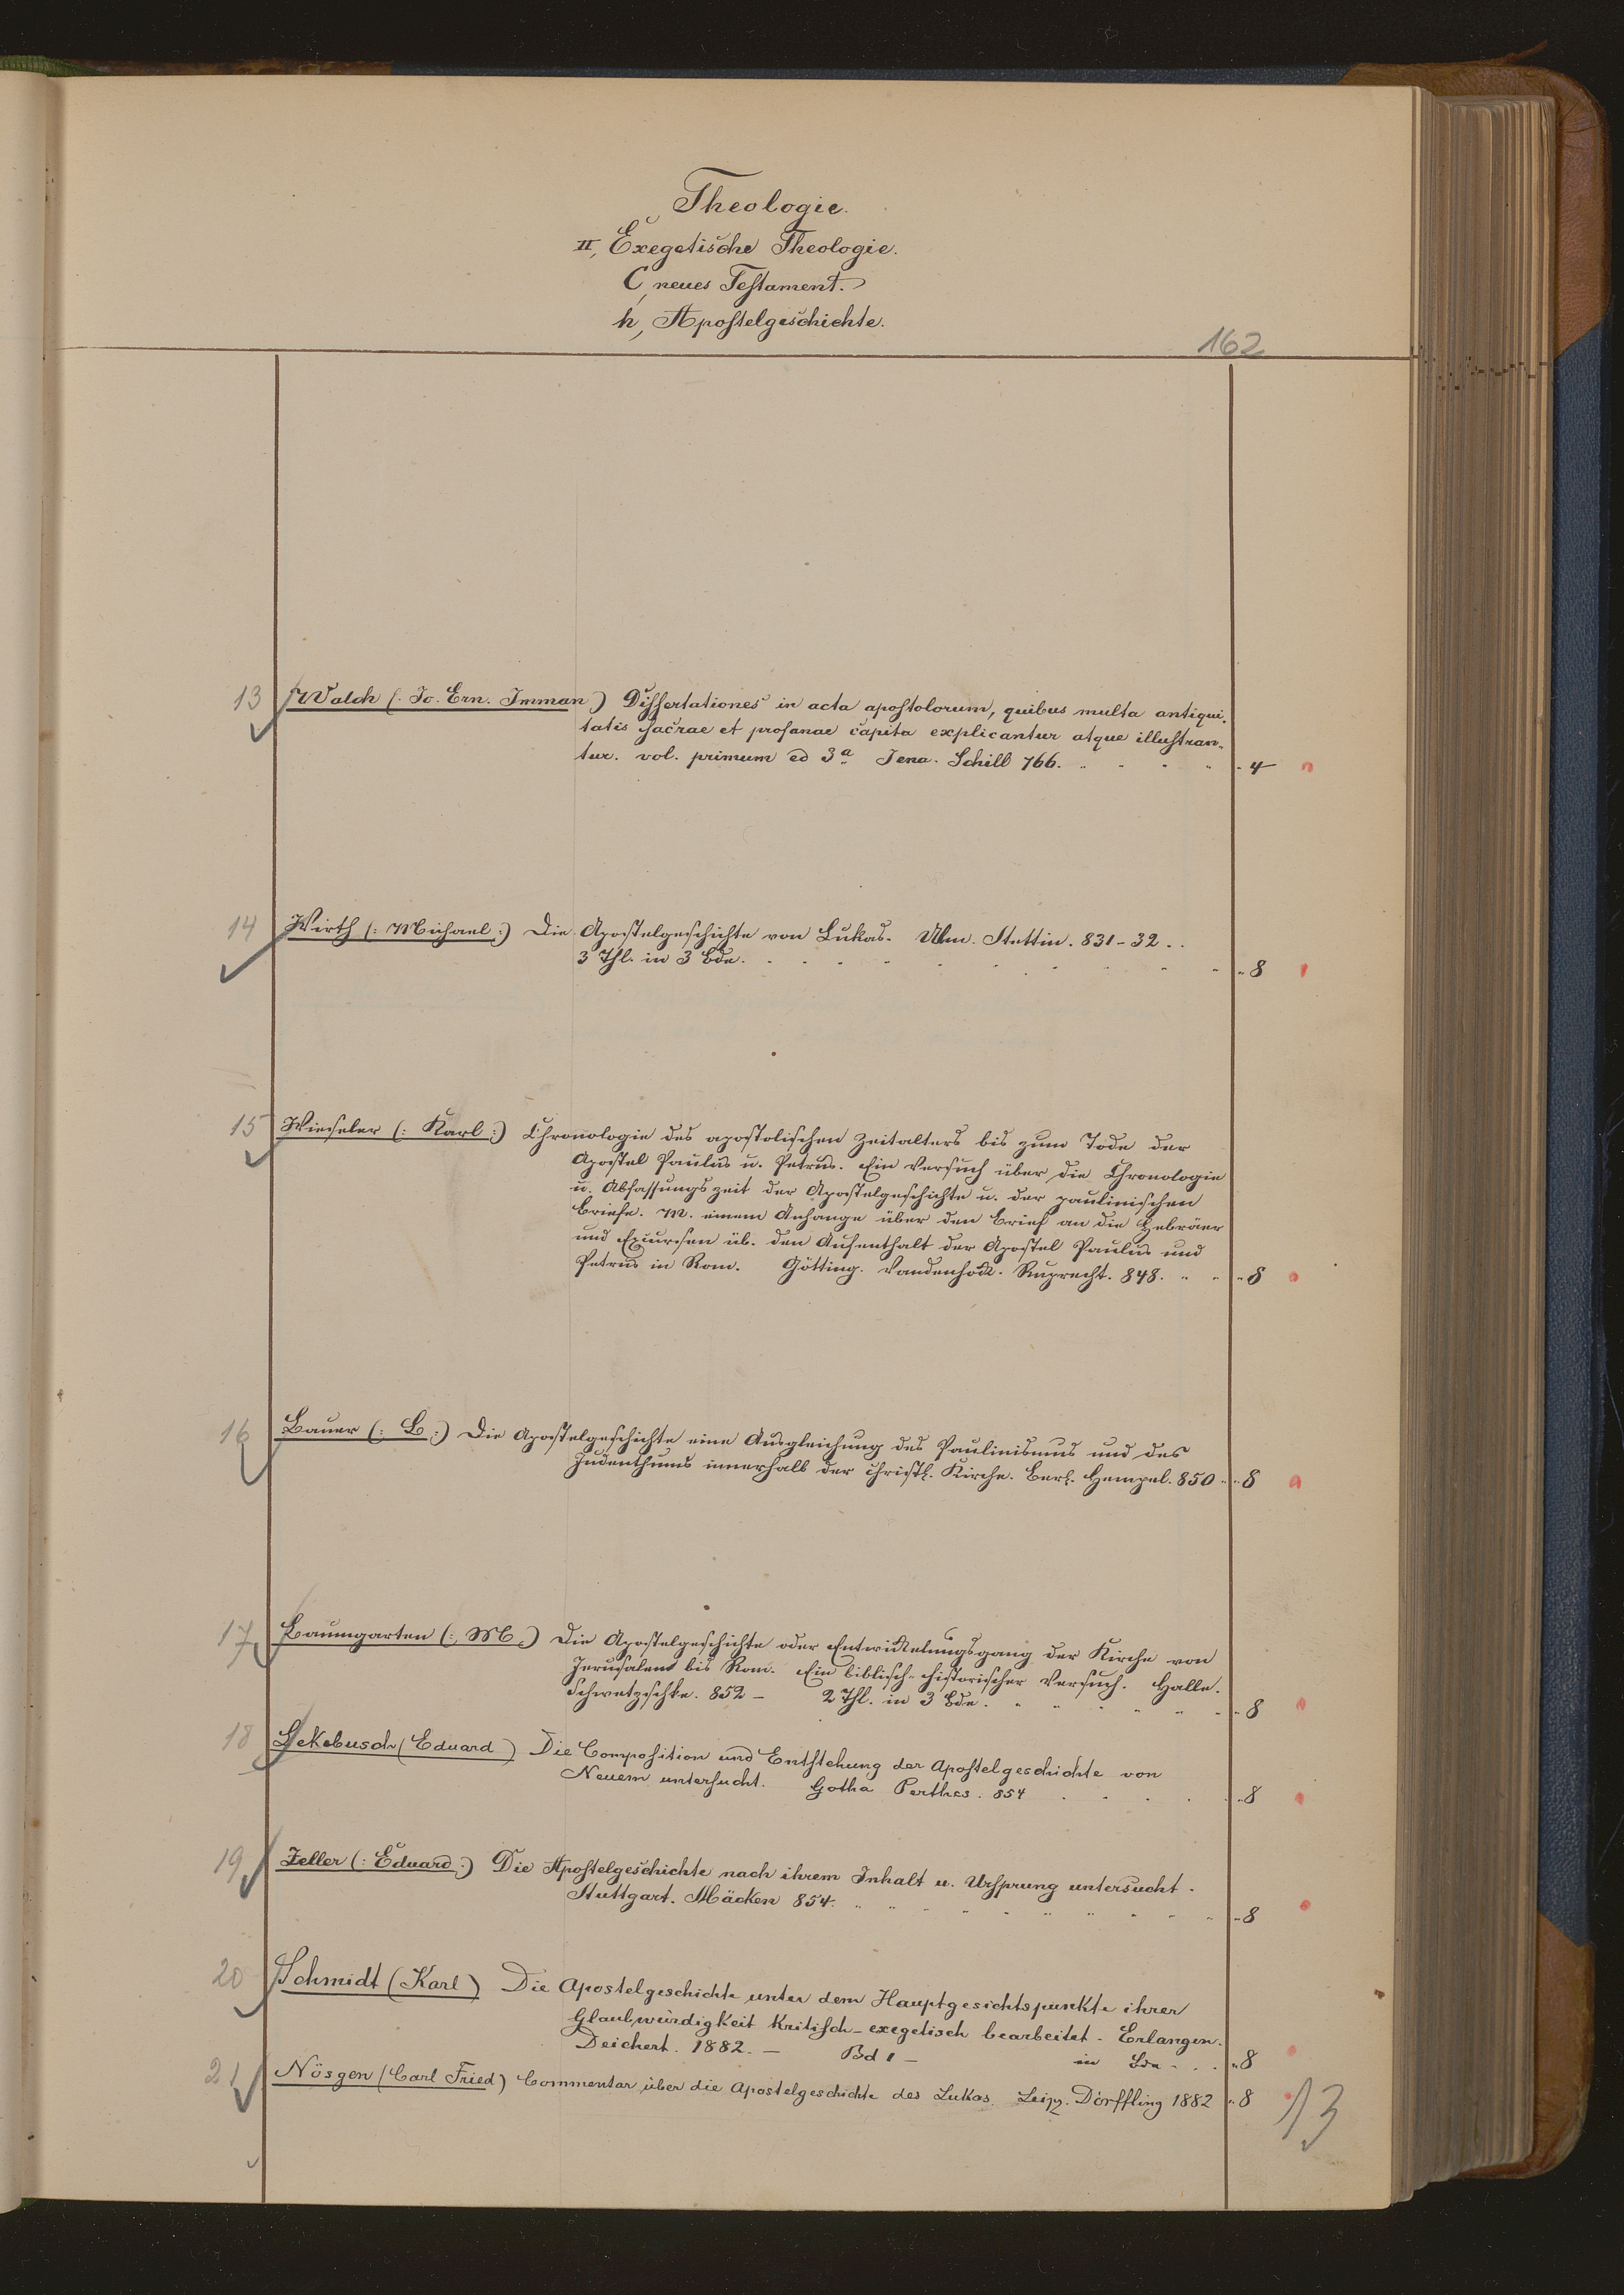 Theologie.
II, Exegetische Theologie.
C, neues Testament.
h, Apostelgeschichte.
162
13 Walch (: Jo. Ern. Imman) Dissertationes in acta apostolorum, quibus multa antiqui-
tatis sacrae et profanae capita explicantur atque illustran-
tur. vol. primum ed 3a Jena. Schill 766. 4
14 Wirth (: Michael :) Die Apostelgeschichte von Lukas. Ulm. Stettin. 831-32.
3 Thl. in 3 Bde. 8
15 Wieseler (: Karl :) Chronologie des apostolischen Zeitalters bis zum Tode der
Apostel Paulus u. Petrus. Ein Versuch über die Chronologie
u. Abfassungszeit der Apostelgeschichte u. der paulinischen
Briefe. M. einem Anhange über den Brief an die Hebräer
und Excursen üb. den Aufenthalt der Apostel Paulus und
Petrus in Rom. Götting. Vandenhöck. Ruprecht. 848. 8
16 Bauer (: B :) Die Apostelgeschichte eine Ausgleichung des Paulinismus und des
Judenthums innerhalb der christl. Kirche. Berl. Hempel. 850 8
17 Baumgarten (: M :) Die Apostelgeschichte oder Entwickelungsgang der Kirche von
Jerusalem bis Rom. Ein biblisch-historischer Versuch. Halle.
Schwetzschke. 852 - 2 Thl. in 3 Bde. 8
18 Lekebusch (Eduard) Die Composition und Entstehung der Apostelgeschichte von
Neuem untersucht. Gotha Perthes. 854 8
19 Zeller (: Eduard :) Die Apostelgeschichte nach ihrem Inhalt u. Ursprung untersucht.
Stuttgart. Mäcken 854. 8
20 Schmidt (Karl) Die Apostelgeschichte unter dem Hauptgesichtspunkte ihrer
Glaubwürdigkeit kritisch-exegetisch bearbeitet - Erlangen.
Deichert. 1882. - Bd 1 - in Bde 8
21 Nösgen (Carl Fried) Commentar über die Apostelgeschichte des Lukas. Leipz. Dörffling 1882 8
13